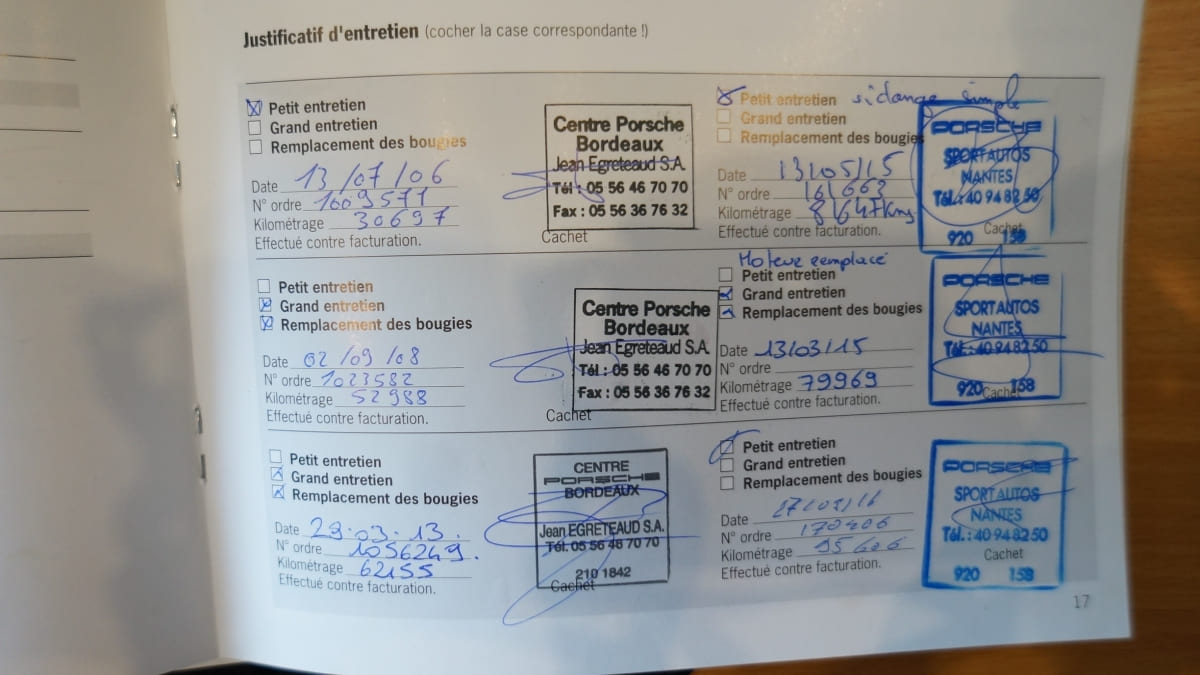 Justificatif d'entretien (cocher la case correspondante !)
Petit entretien
Grand entretien
Remplacement des bougies
Date 13/07/06
N° ordre 1609577
Kilométrage 30697
Effectué contre facturation.
Centre Porsche
Bordeaux
Jean Egreteaud S.A.
Tél : 05 56 46 70 70
Fax : 05 56 36 76 32
Cachet
Petit entretien
Grand entretien
Remplacement des bougies
Date 02/09/08
N° ordre 1023582
Kilométrage 52988
Effectué contre facturation.
Centre Porsche
Bordeaux
Jean Egreteaud S.A.
Tél : 05 56 46 70 70
Fax : 05 56 36 76 32
Cachet
Petit entretien
Grand entretien
Remplacement des bougies
Date 29.03.13.
N° ordre 1056249.
Kilométrage 62155
Effectué contre facturation.
CENTRE
PORSCHE
BORDEAUX
Jean EGRETEAUD S.A.
Tél. 05 56 46 70 70
210 1842
Cachet
Petit entretien simple
Grand entretien
Remplacement des bougies
Date 13/05/15
N° ordre 161663
Kilométrage
Effectué contre facturation.
PORSCHE
SPORT AUTOS
NANTES
Tél. : 40 94 82 50
Cachet
920 158
Moteur remplacé
Petit entretien
Grand entretien
Remplacement des bougies
Date 13/03/15
N° ordre
Kilométrage 79969
Effectué contre facturation.
PORSCHE
SPORT AUTOS
NANTES
Tél. : 40 94 82 50
920 Cachet 158
Petit entretien
Grand entretien
Remplacement des bougies
Date
N° ordre 170406
Kilométrage
Effectué contre facturation.
PORSCHE
SPORT AUTOS
NANTES
Tél. : 40 94 82 50
Cachet
920 158
17